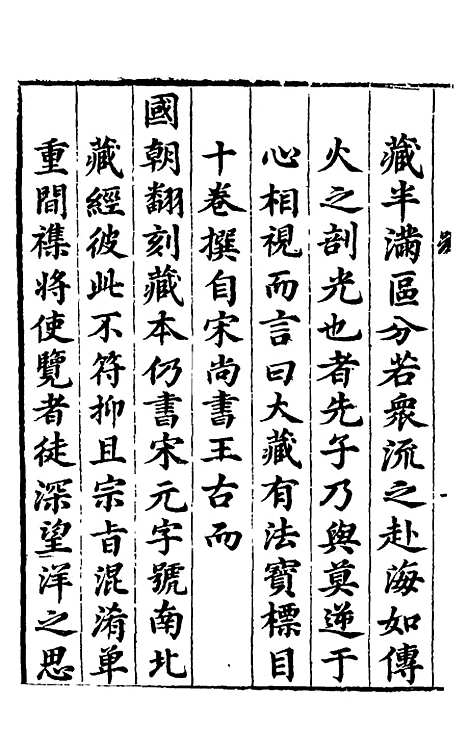 藏半滿區分若衆流之赴海如傳
火之剖光也者先子乃與莫逆于
心相視而言曰大藏有法寶標目
十卷撰自宋尚書王古而
國朝翻刻藏本仍書宋元字號南北
藏經彼此不符抑且宗旨混淆單
重間襍將使覽者徒深望洋之思